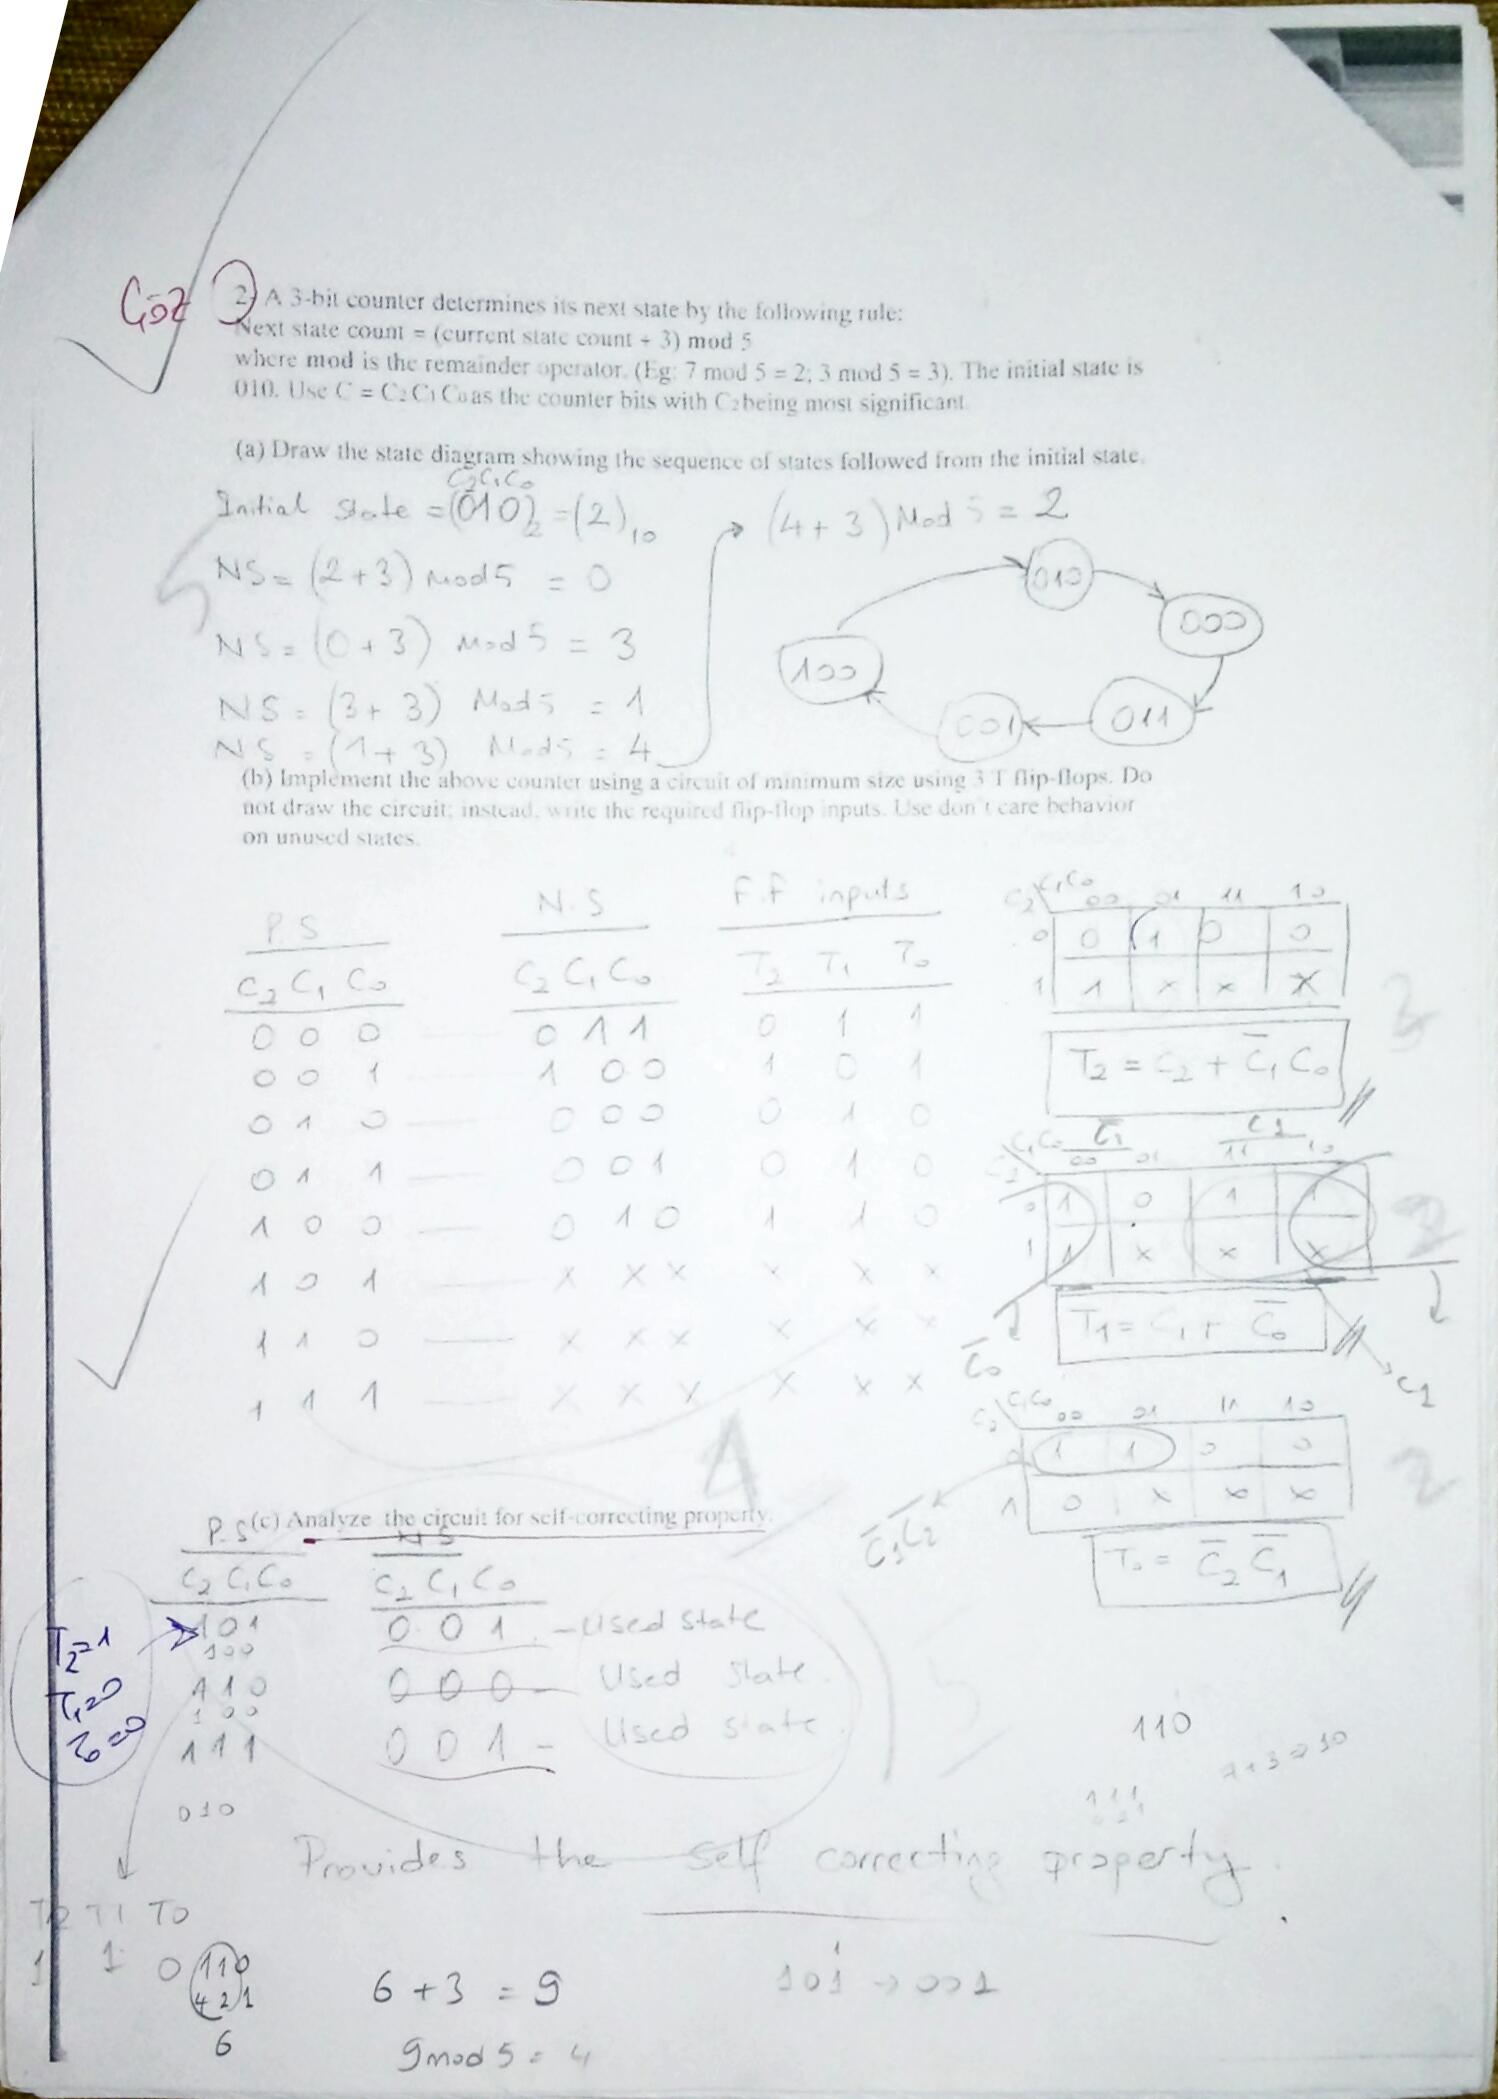 Çöz
2) A 3-bit counter determines its next state by the following rule:
Next state count = (current state count + 3) mod 5
where mod is the remainder operator. (Eg: 7 mod 5 = 2; 3 mod 5 = 3). The initial state is
010. Use C = C2 C1 C0 as the counter bits with C2 being most significant.
(a) Draw the state diagram showing the sequence of states followed from the initial state.
C2 C1 C0
Initial State = (010)2 = (2)10
NS = (2+3) mod 5 = 0
NS = (0+3) Mod 5 = 3
NS = (3+3) Mod 5 = 1
NS = (1+3) Mod 5 = 4
(4+3) Mod 5 = 2
010
000
100
001
011
(b) Implement the above counter using a circuit of minimum size using 3 T flip-flops. Do
not draw the circuit; instead, write the required flip-flop inputs. Use don't care behavior
on unused states.
P.S N.S F.F inputs
C2 C1 C0 C2 C1 C0 T2 T1 T0
0 0 0 0 1 1 0 1 1
0 0 1 1 0 0 1 0 1
0 1 0 0 0 0 0 1 0
0 1 1 0 0 1 0 1 0
1 0 0 0 1 0 1 1 0
1 0 1 x x x x x x
1 1 0 x x x x x x
1 1 1 x x x x x x
4
C2 C1C0 00 01 11 10
0 0 1 0 0
1 1 x x x
3
T2 = C2 + C̅1 C0
C̅1 C1
C2 C1C0 00 01 11 10
0 1 0 1 1
1 1 x x x
2
T1 = C1 + C̅0
C̅0
C1
C2 C1C0 00 01 11 10
0 1 1 0 0
1 0 x x x
2
C̅1 C̅2
T0 = C̅2 C̅1
(c) Analyze the circuit for self-correcting property.
P.S N.S
C2 C1 C0 C2 C1 C0
101 0 0 1 - Used State
100
110 0 0 0 - Used State.
100
111 0 0 1 - Used State.
010
T2=1
T1=0
T0=0
110
7+3=10
111
Provides the self correcting property.
T2 T1 T0
1 1 0
110
421
6
6 + 3 = 9
9 mod 5 = 4
101 → 001